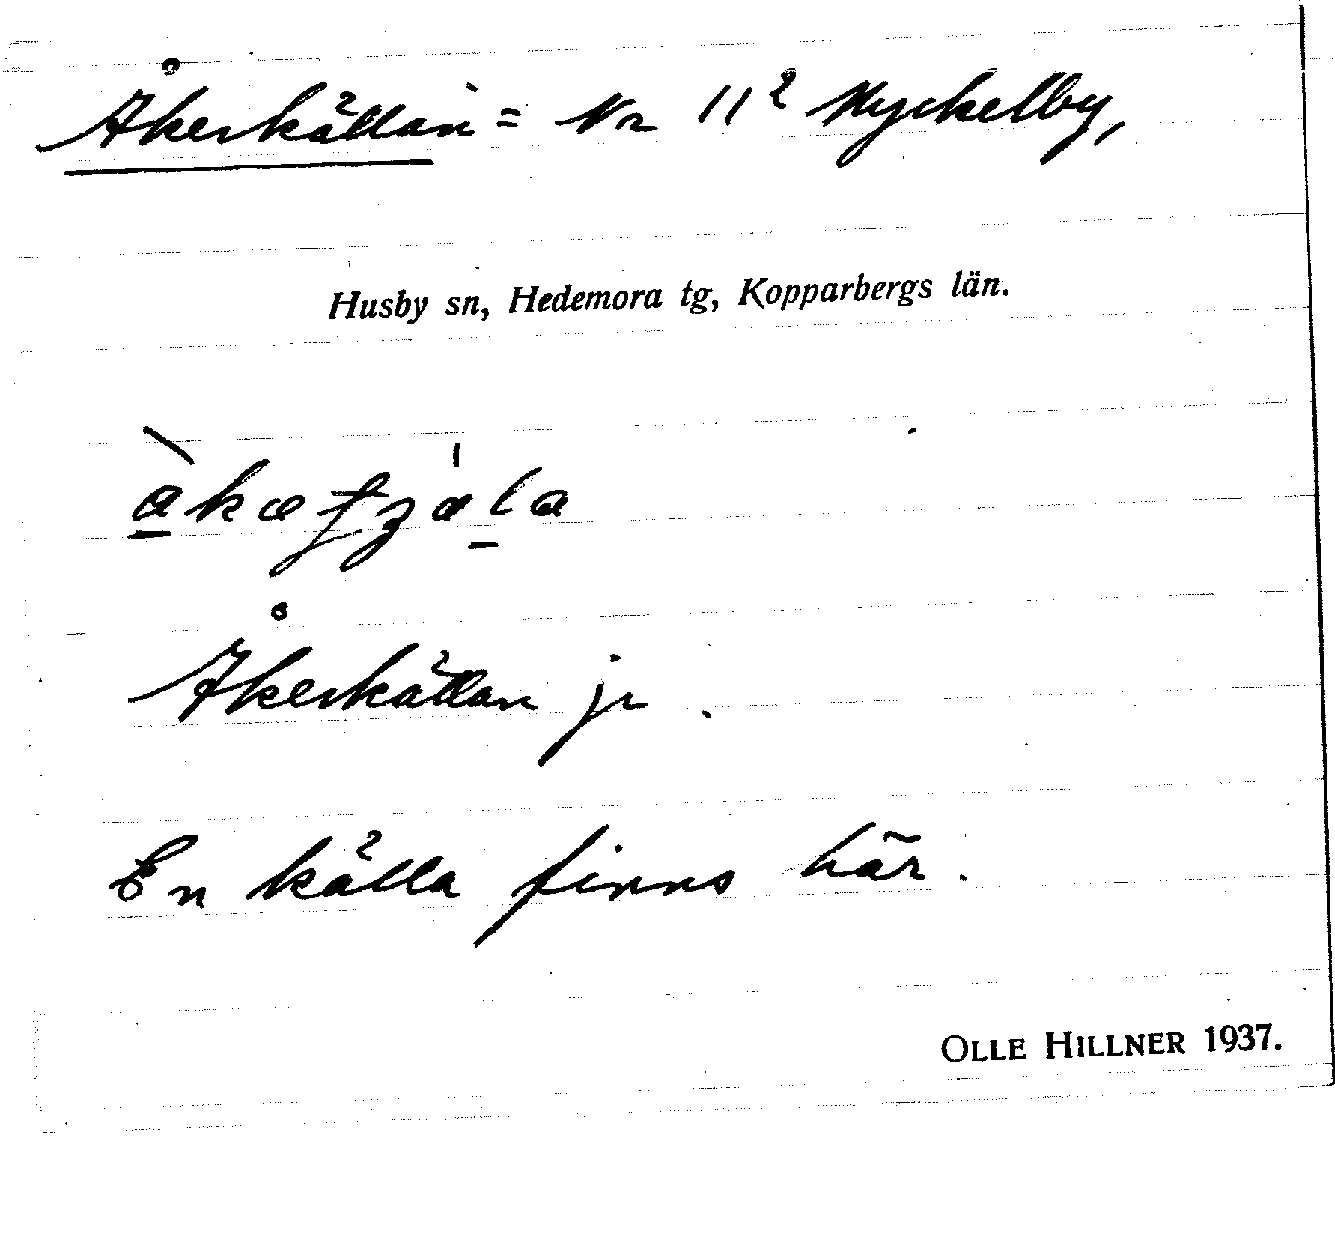 Åkerkällan = Nr 11² Nyckelby,
Husby sn, Hedemora tg, Kopparbergs län.
Åkerkällan jr.
En källa finns här.
OLLE HILLNER 1937.